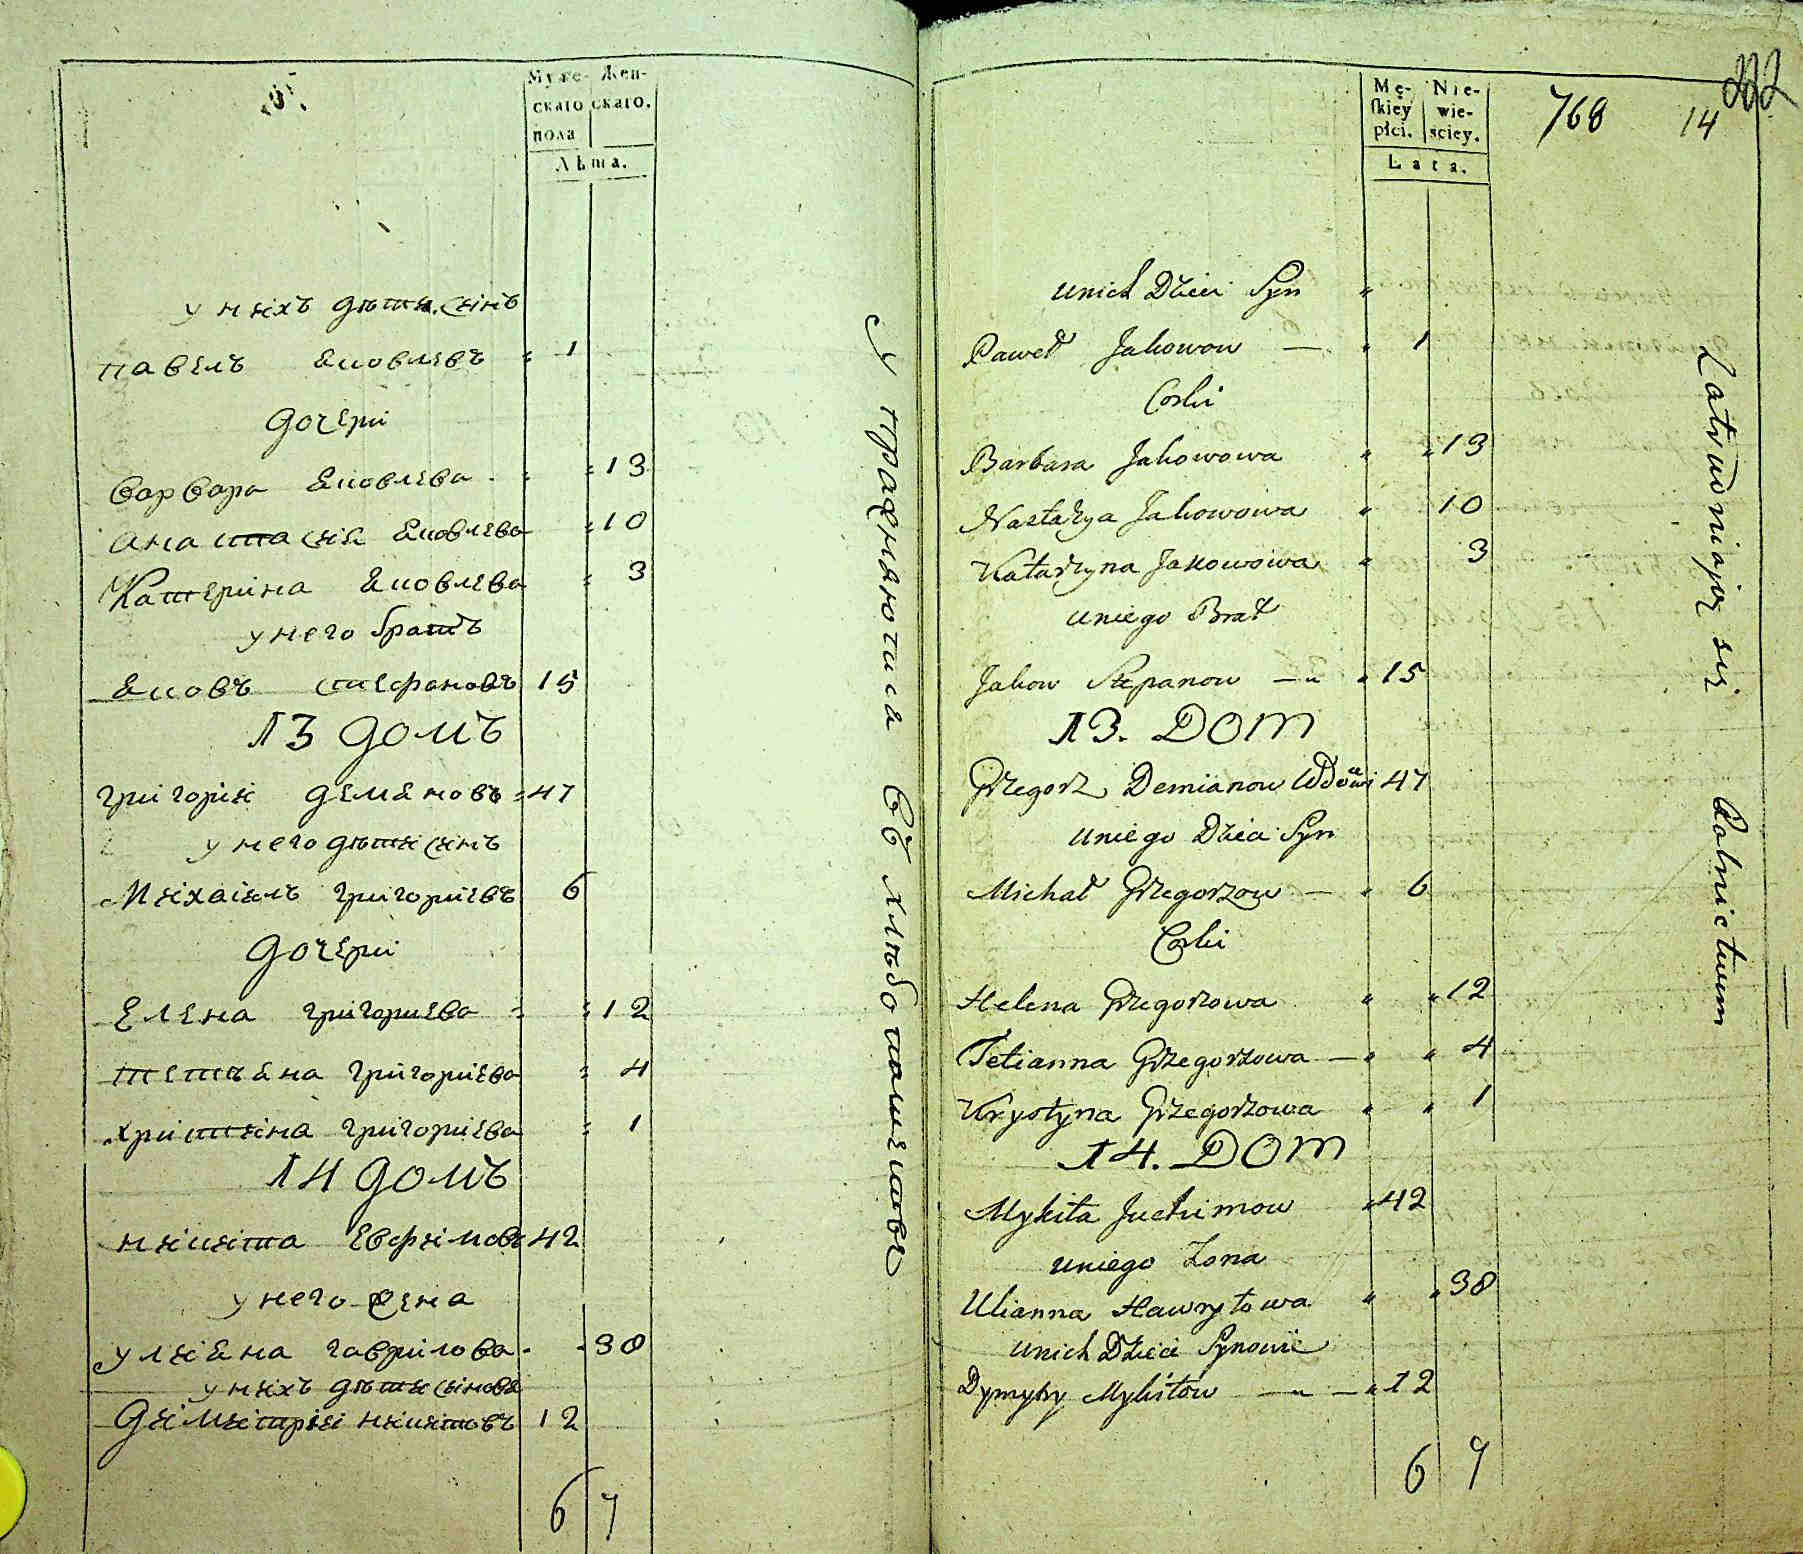 Муже- Жен-
скаго скаго.
пола
Лѣта.
у нихъ дѣти, синъ
павелъ Яковлевъ 1
дочери
варвара Яковлева 13
анастасия Яковлева 10
Катерина Яковлева 3
у него братъ
Яковъ стефановъ 15
13 домъ
григорий демяновъ 47
у него дѣти синъ
михаилъ григориевъ 6
дочери
елена григориева 12
тетьяна григориева 4
христина григориева 1
14 домъ
никита евфимовъ 42
у него жена
улияна гаврилова 38
у нихъ дѣти синовя
димитрий никитовъ 12
6 7
упражняются въ хлѣбопашествѣ
Mę- Nie-
skiey wie-
płci. sciey.
Lata.
768 14
222
unich Dzieci Syn
Paweł Jakowow — 1
Corki
Barbara Jakowowa 13
Nastazya Jakowowa 10
Katarzyna Jakowowa 3
uniego Brat
Jakow Stepanow — 15
13. DOM
Grzegorz Demianow Wdowi 47
uniego Dzieci Syn
Michał Grzegorzow — 6
Corki
Helena Grzegorzowa 12
Tetianna Grzegorzowa — 4
Krystyna Grzegorzowa 1
14. DOM
Mykita Juchimow 42
uniego Zona
Ulianna Hawryłowa 38
unich Dzieci Synowie
Dymytry Mykitow — 12
6 7
Zatrudniaią się Rolnictwem